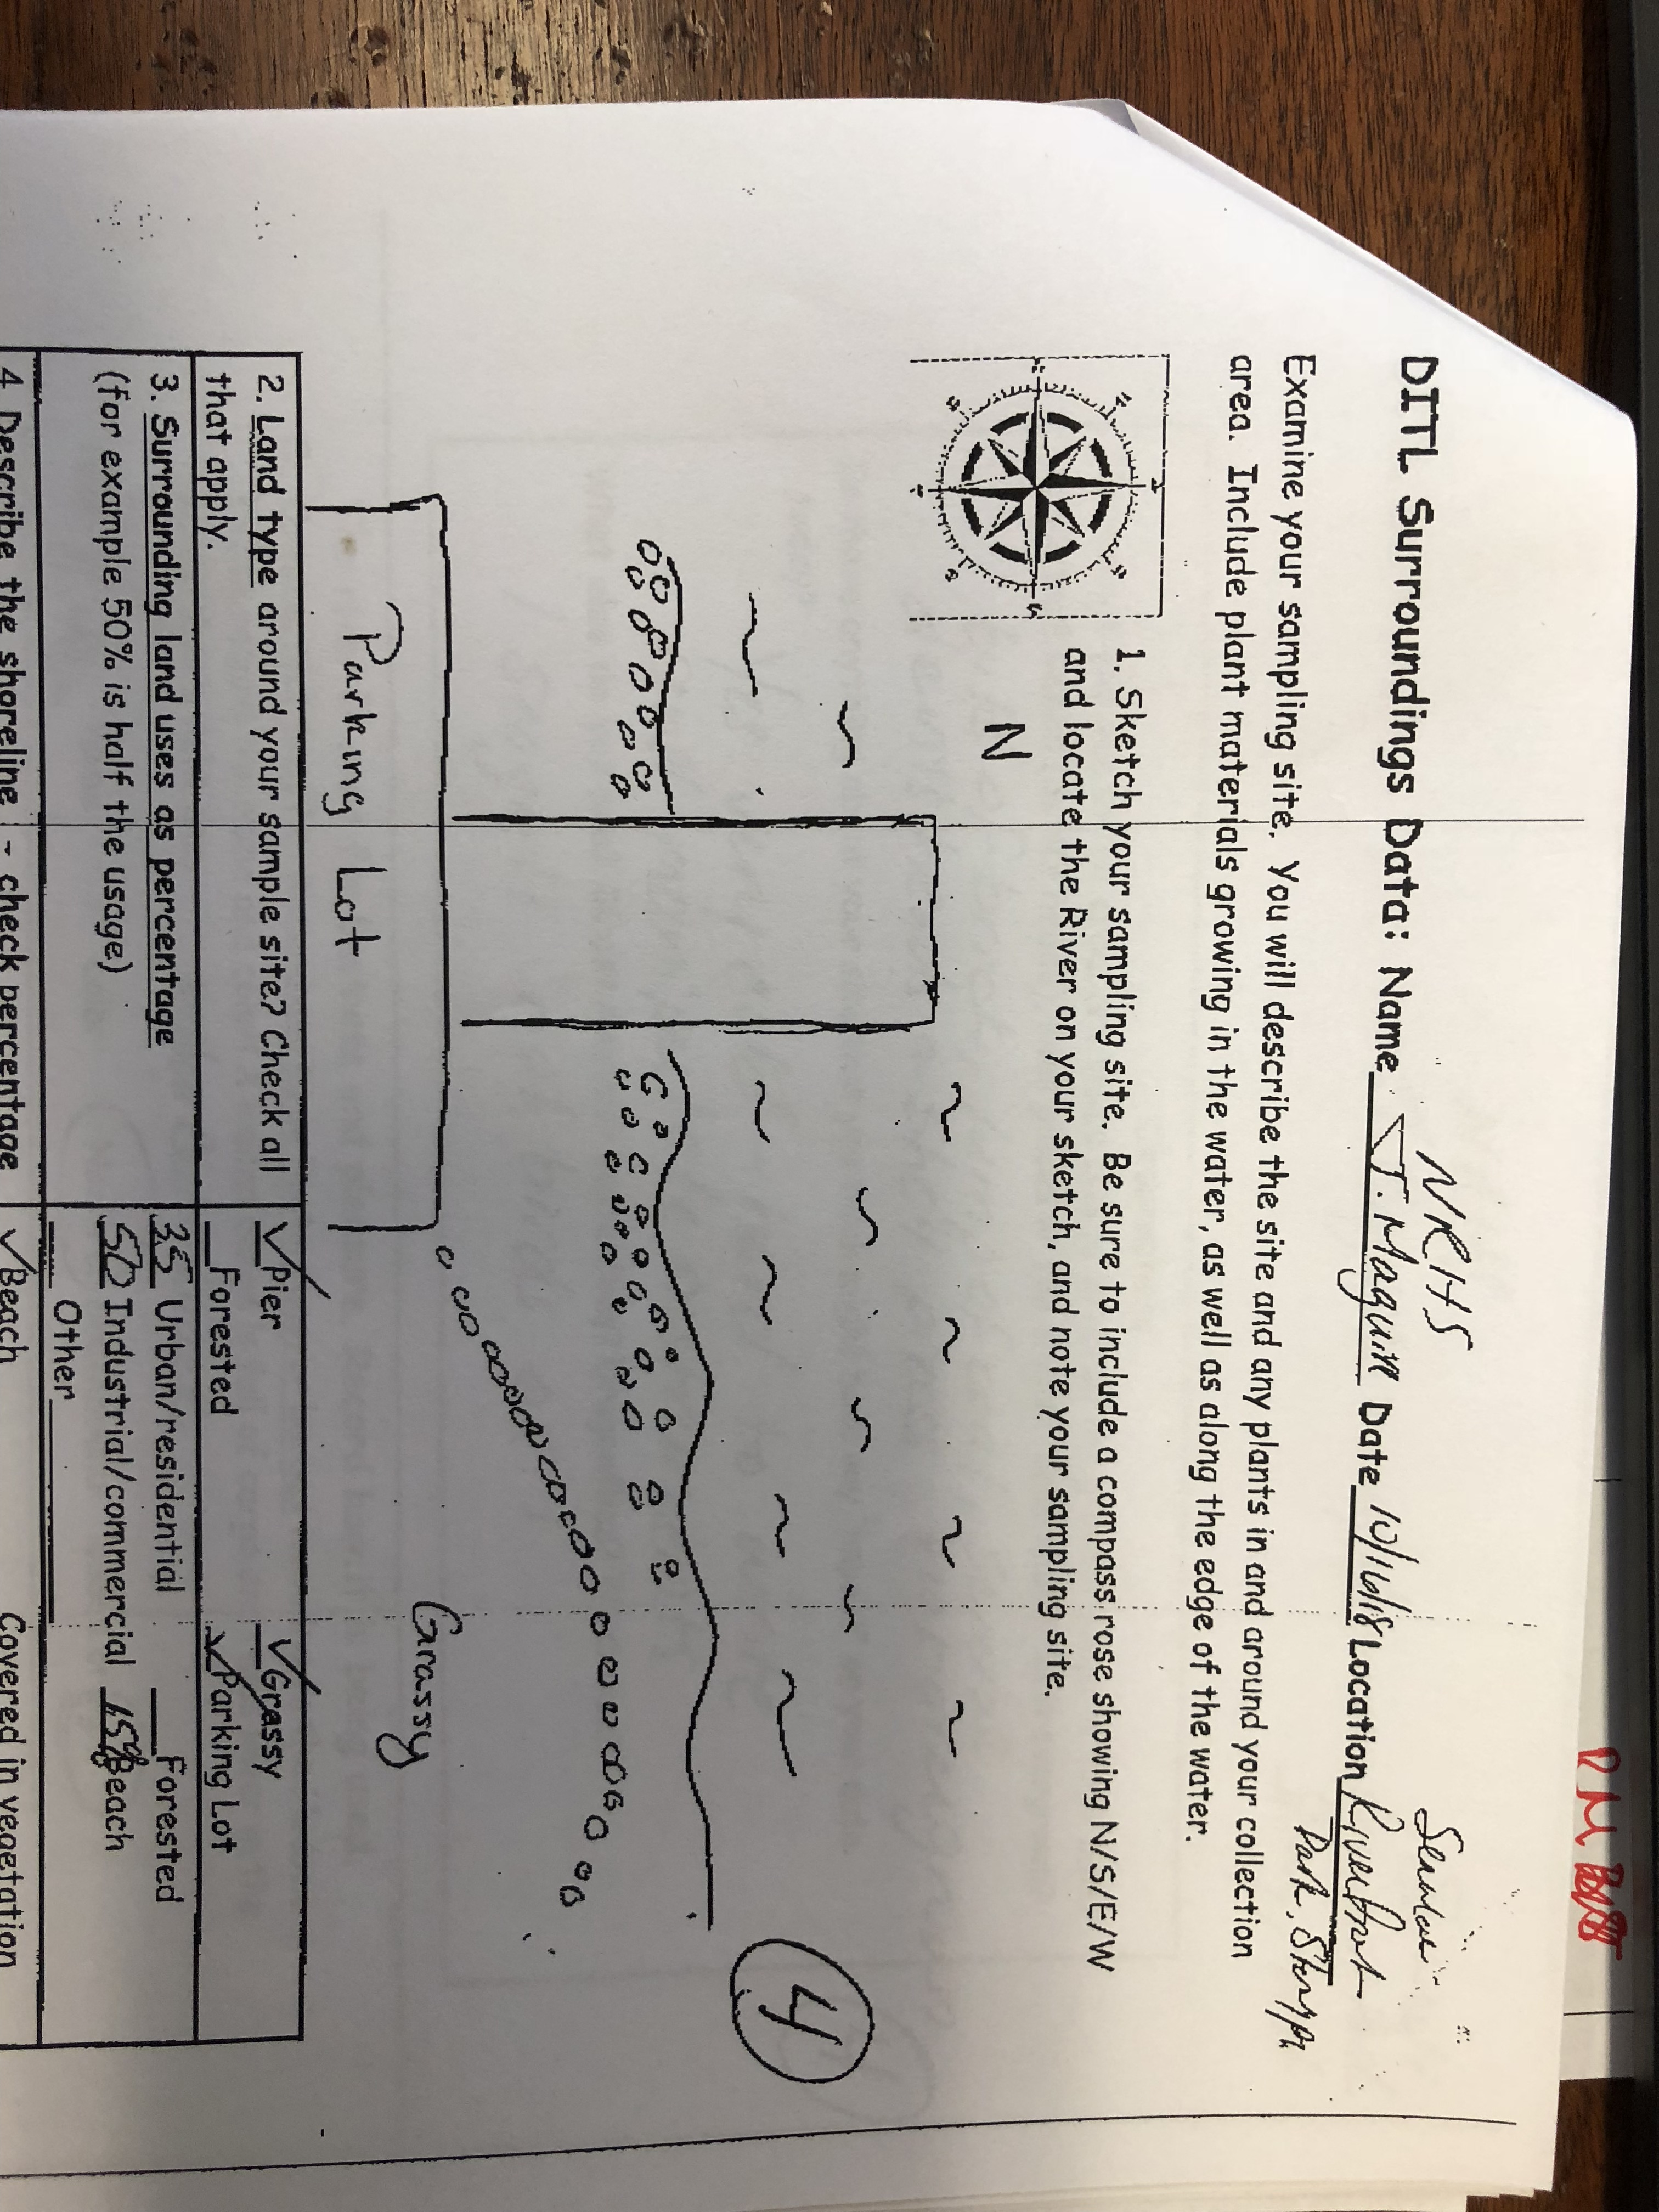 NRHS
DITL Surroundings Data: Name J. Maguire Date 10/16/18 Location Riverfront
Park,
Examine your sampling site. You will describe the site and any plants in and around your collection
area. Include plant materials growing in the water, as well as along the edge of the water.
1. Sketch your sampling site. Be sure to include a compass rose showing N/S/E/W
and locate the River on your sketch, and note your sampling site.
N
4
Grassy
Parking Lot
2. Land type around your sample site? Check all
that apply.
✓ Pier ✓ Grassy
__ Forested ✓ Parking Lot
3. Surrounding land uses as percentage
(for example 50% is half the usage)
35 Urban/residential __ Forested
50 Industrial/commercial 15% Beach
__ Other
4 Describe the shoreline - check percentage
✓ Beach Covered in vegetation